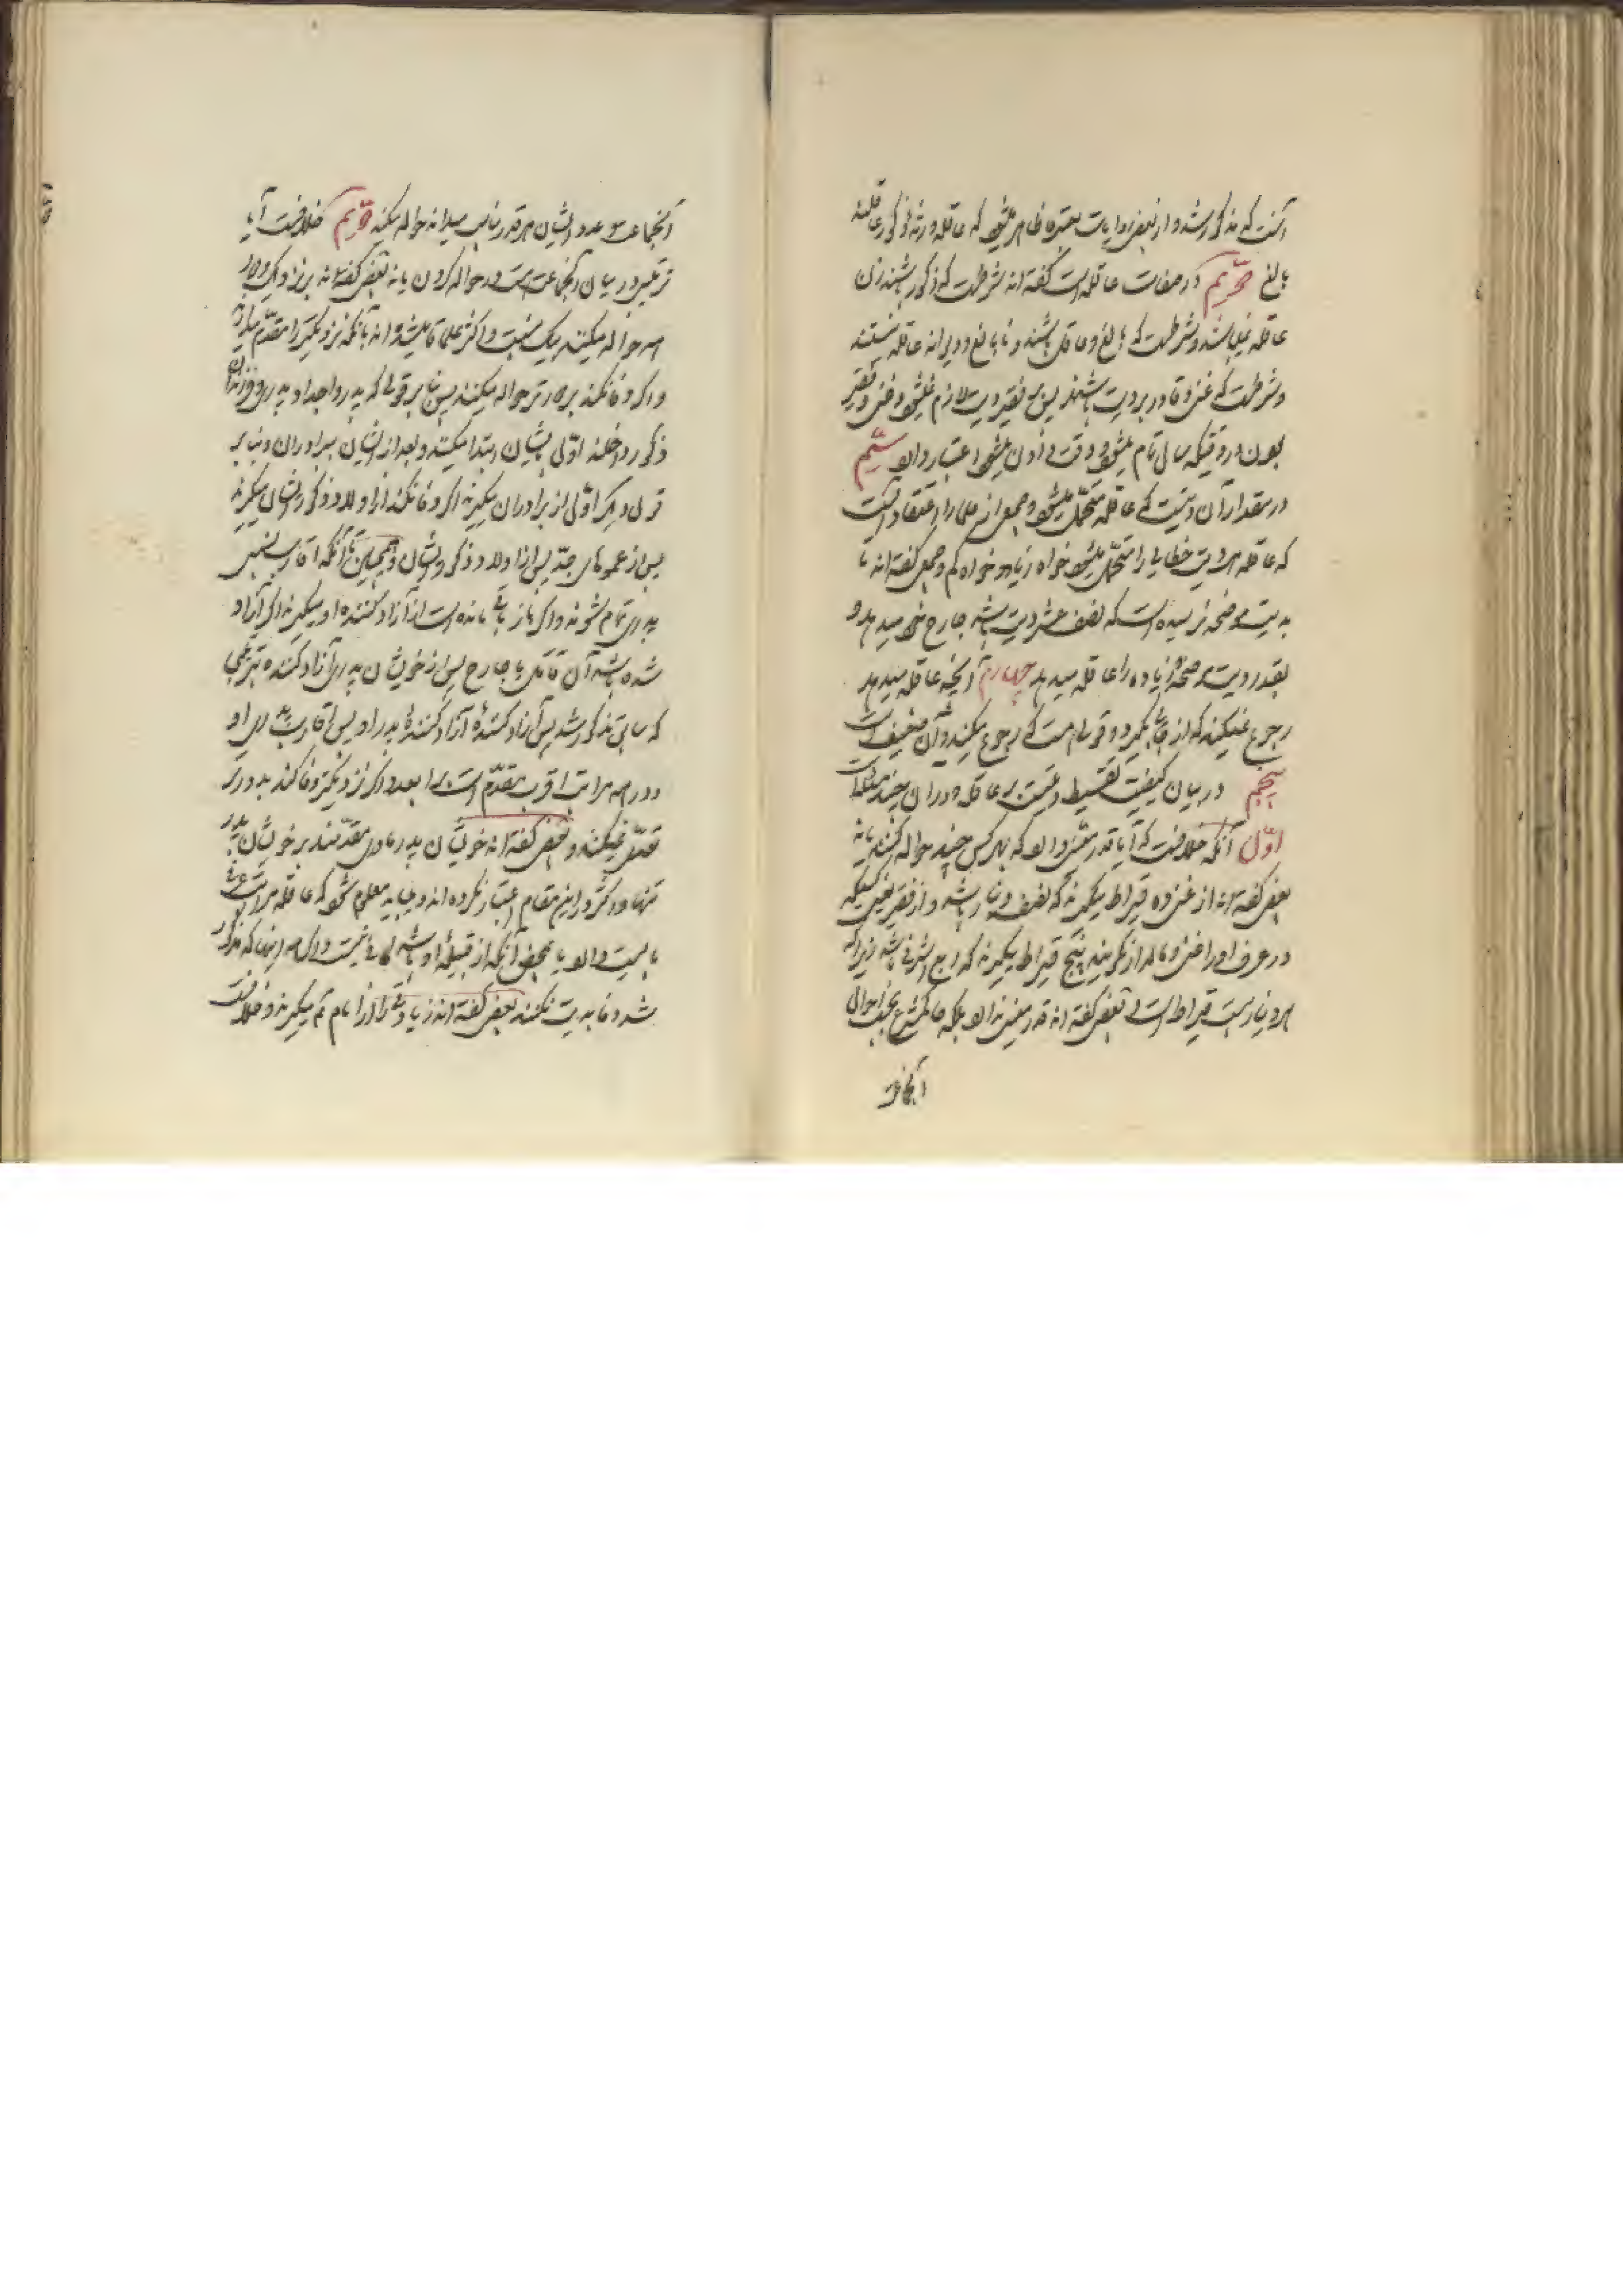 آنست که مذکور شد و از بعض روایات معتبره ظاهر میشود که عاقله ورثه ذکور عاقلند
بالغ دویّم در صفات عاقله است گفته‌اند شرطست که ذکور باشند زن
عاقله نمیباشد و شرطست که بالغ و عاقل باشند و نابالغ و دیوانه عاقله نیستند
و شرطست که غنی و قادر بر دیت باشند پس بر فقیر دیت لازم نمیشود و غنی و فقیر
بودن در وقتیکه سال تمام میشود و وقت دادن میشود اعتبار دارد سیّم
در مقدار آن دیتیست که عاقله متحمّل میشود و جمعی از علما را اعتقاد آنست
که عاقله هر دیت خطایی را متحمّل میشود خواه زیاد و خواه کم و جمعی گفته‌اند تا
بدیت موضحه نرسیده است که نصف عشر دیت باشد جارح خود میدهد و
بقدر دیت موضحه و زیاده را عاقله میدهد چهارم آنچه عاقله میدهد
رجوع نمیکند که از قاتل بگیرد و قولی هست که رجوع میکند و آن ضعیف است
پنجم در بیان کیفیّت تقسیط دیتست بر عاقله و در آن چند مطلبست
اوّل آنکه خلافست که آیا قدر معیّنی دارد که بهر کس چند حواله کنند یا نه
بعض گفته‌اند از غنی ده قیراط میگیرند که نصف دینار باشد و از فقیر یعنی کسیکه
در عرف او را غنی و مالدار نگویند پنج قیراط میگیرند که ربع اشرفی باشد زیرا که
هر دینار بیست قیراط است و بعض گفته‌اند قدر معیّنی ندارد بلکه حاکم شرع بحسب احوال
آنجماعت
آنجماعت و عدد ایشان هر قدر مناسب میداند حواله میکند دویّم خلافست آیا
ترتیبی در میان آنجماعت هست در حواله کردن یا نه بعض گفته‌اند بر نزدیک و دور
همه حواله میکنند بیک نسبت و اکثر علما قایل شده‌اند بآنکه نزدیکتر را مقدّم میدارند
و اگر وفا نکند بر دورتر حواله میکنند پس بنا بر قولی که پدر و اجداد پدری و فرزندان
ذکور داخلند اوّل بایشان ابتدا میکنند و بعد از ایشان ببرادران و بنا بر
قول دیگر اوّل از برادران میگیرند اگر وفا نکند از اولاد ذکور ایشان میگیرند
پس از عموهای جدّ پس از اولاد ذکور ایشان و همچنین تا آنکه اقارب نسبی
پدری تمام شوند و اگر باز باقی مانده است از آزاد کننده او میگیرند اگر آزاد
شده باشد آن قاتل یا جارح پس از خویشان پدری آزاد کننده بترتیبی
که سابق مذکور شد پس آزاد کنندهٔ آزاد کنندهٔ پدر او پس اقارب پدری او
و در همه مراتب اقرب مقدّم است بر ابعد و اگر نزدیکتر وفا کند بدورتر
تعدّی نمیکنند و بعض گفته‌اند خویشان پدر مادری مقدّمند بر خویشان پدری
تنها و اکثر در این مقام اعتبار نکرده‌اند و میباید معلوم شود که عاقله مرتبهٔ
باینست و الّا بمحض آنکه از قبیلهٔ او باشد کافی نیست و اگر همه اینها که مذکور
شد وفا بدیت نکنند بعض گفته‌اند زیادتی را از امام هم میگیرند و خلافست